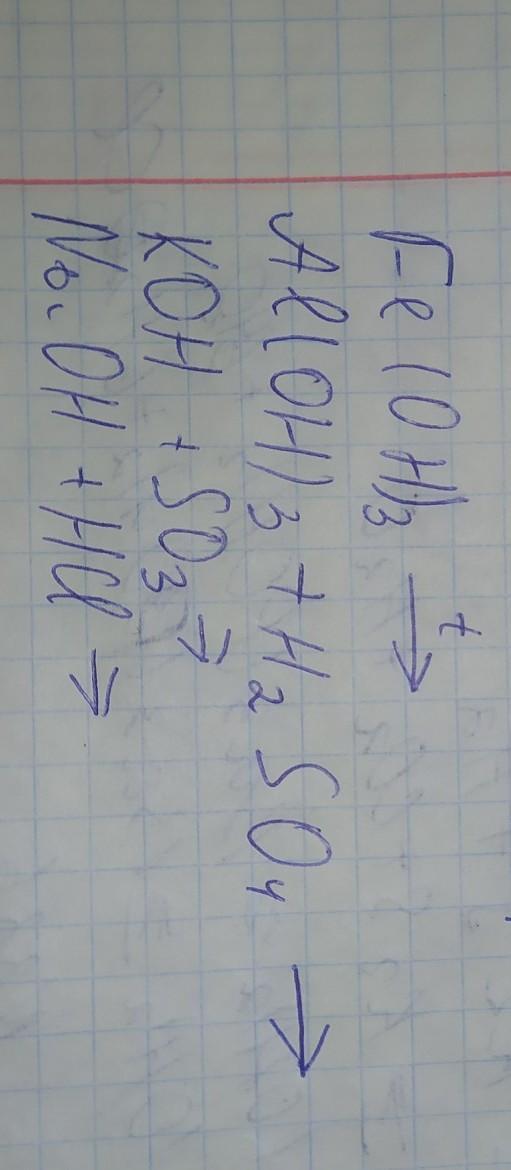 Fe(OH)₃ →ᵗ
Al(OH)₃ + H₂SO₄ →
KOH + SO₃ →
NaOH + HCl →